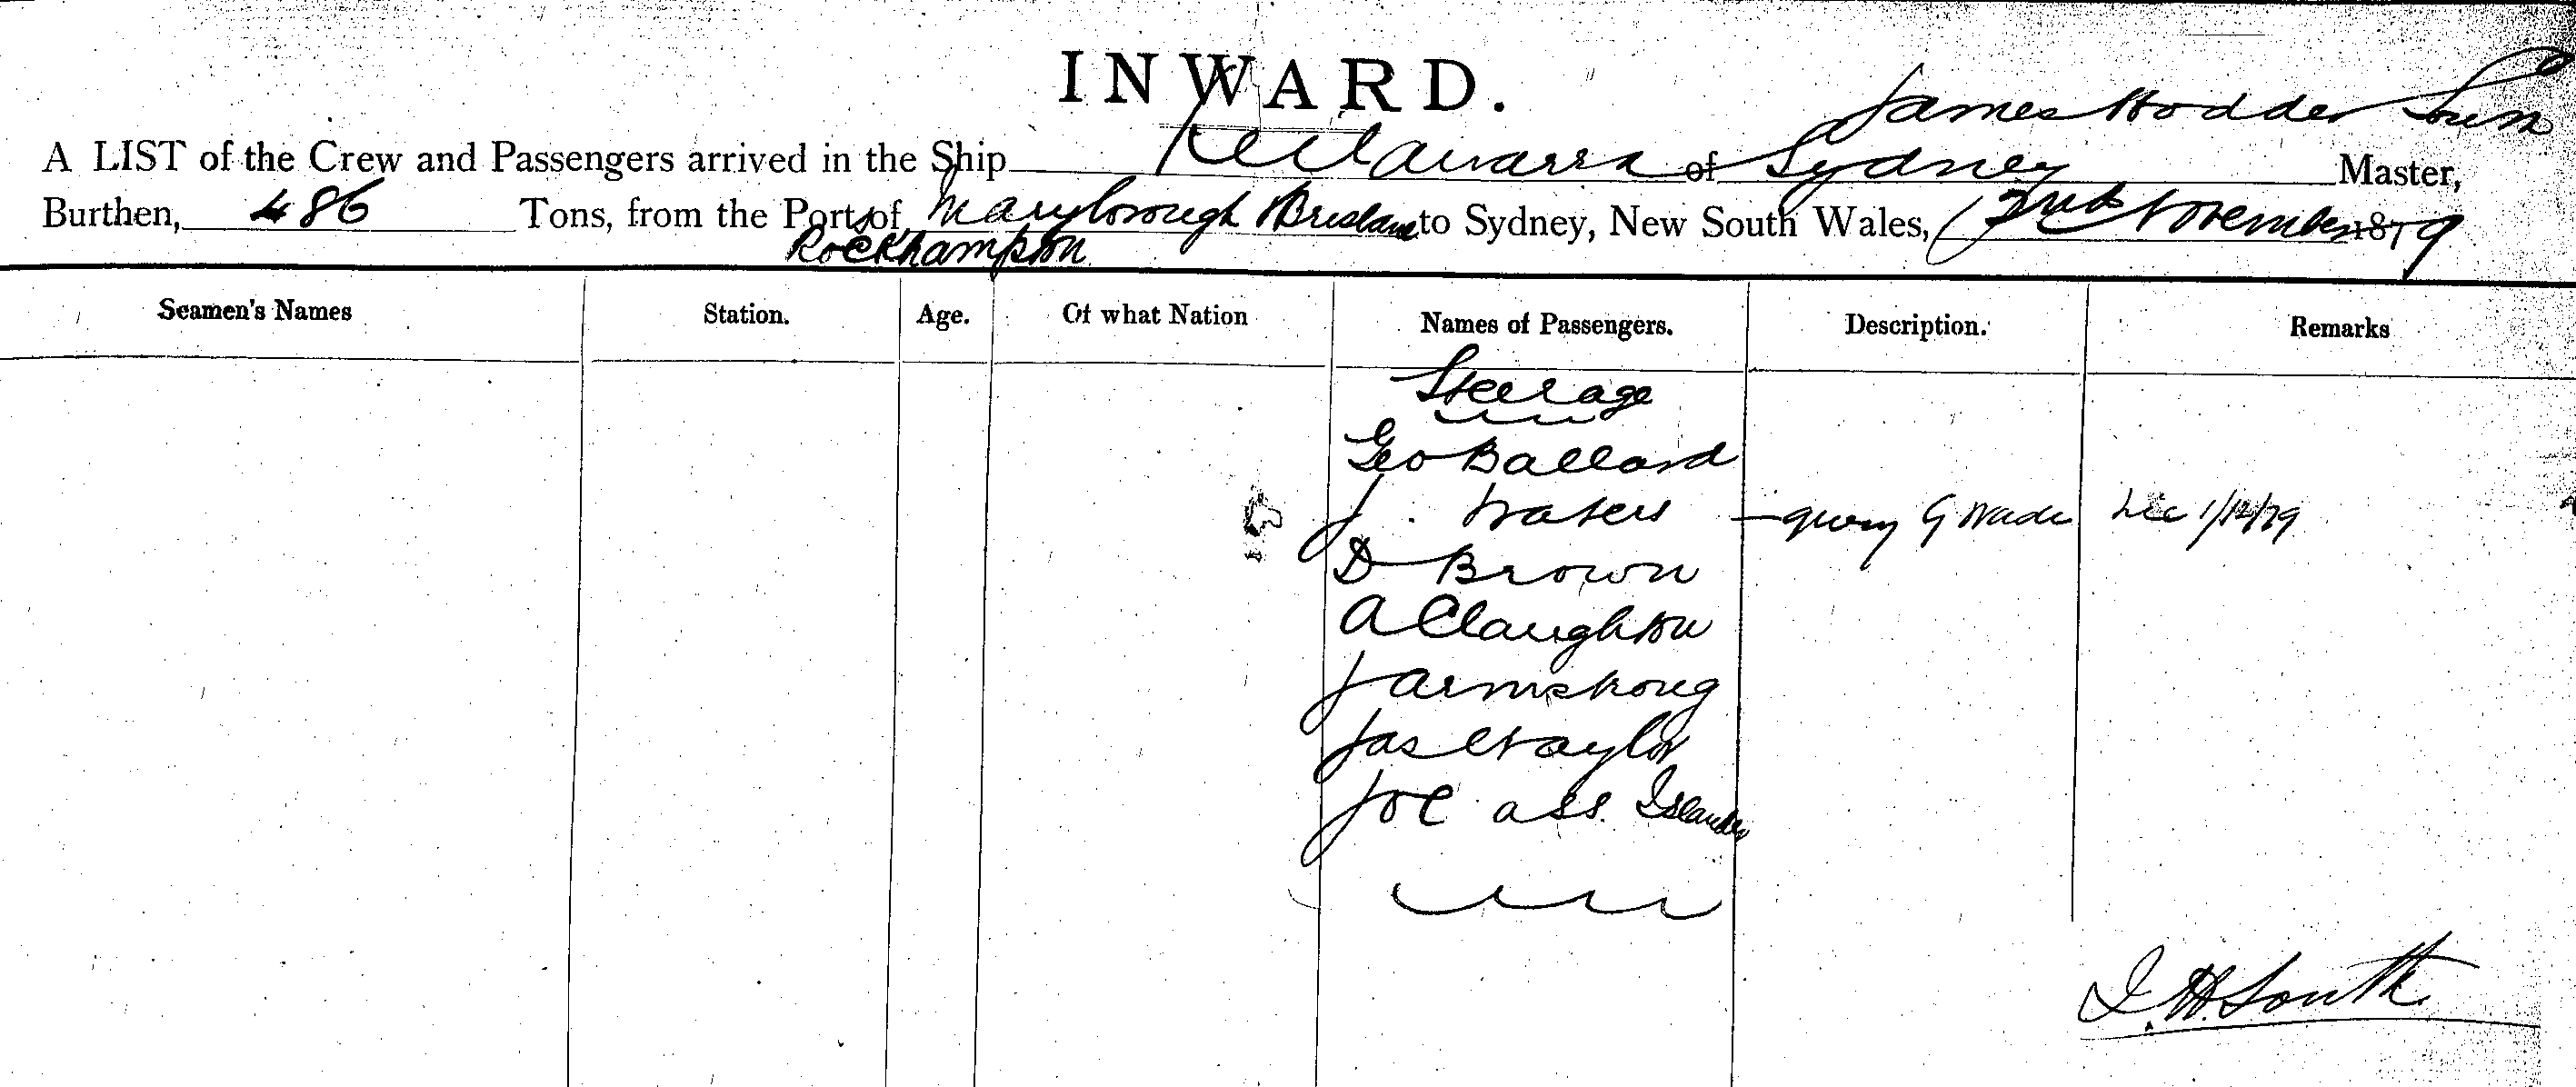 INWARD.
James Hodder South
A LIST of the Crew and Passengers arrived in the Ship Keilawarra of Sydney Master,
Burthen, 486 Tons, from the Port of Maryborough Brisbane to Sydney, New South Wales, 2nd November 1879
Rockhampton
Seamen's Names Station. Age. Of what Nation Names of Passengers. Description. Remarks
Steerage
Geo Ballard
J. Waters — query G Wade 1/12/79
D Brown
A Claughton
J Armstrong
Jas Taylor
Joe a S.S. Islander
J. H. South